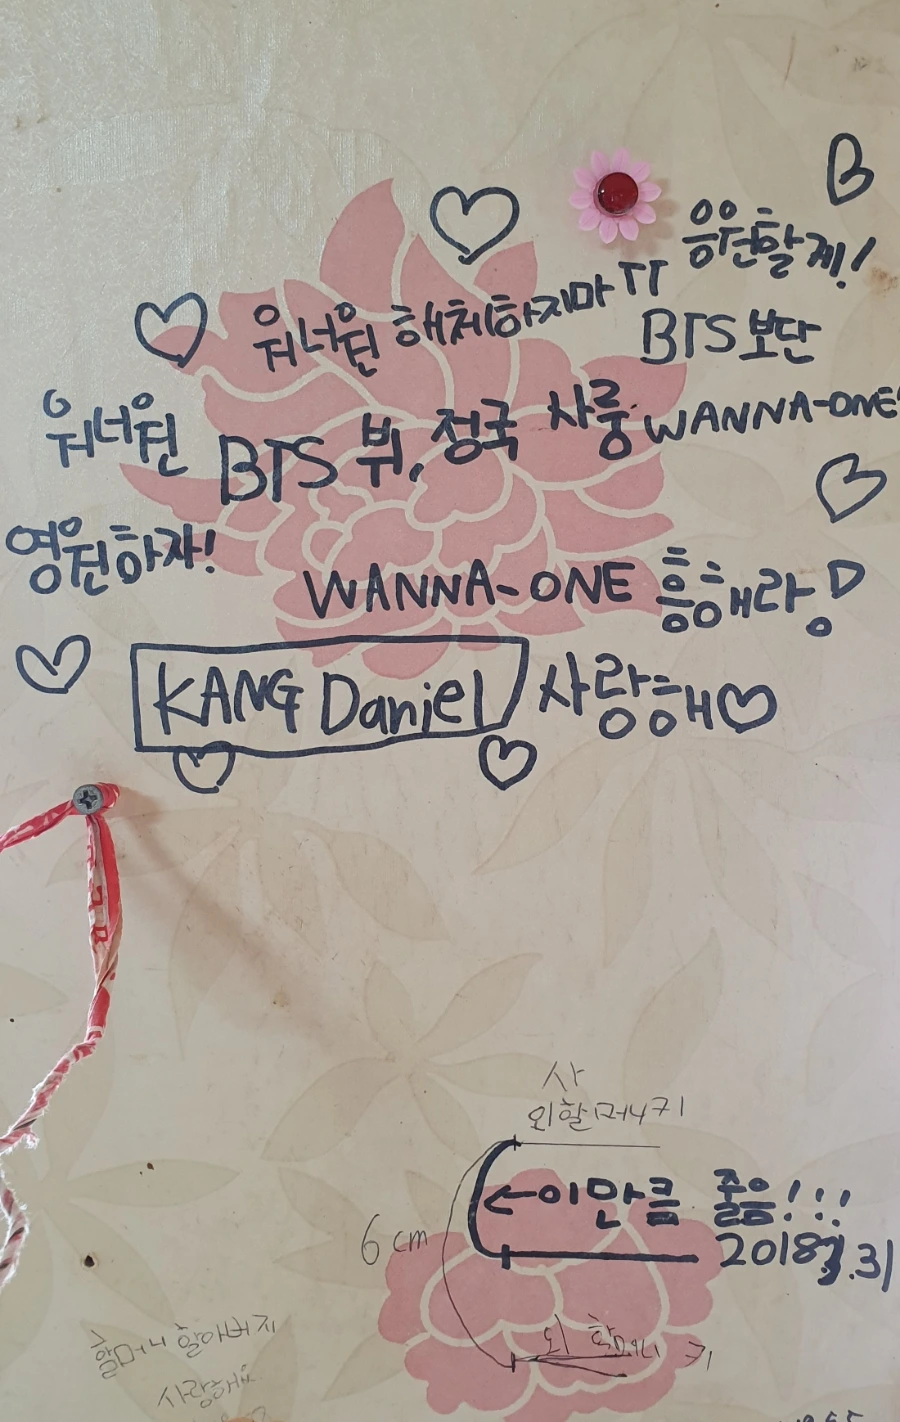 응원할게!
워너원 해체하지마 ㅠㅠ
BTS 보단
워너원 BTS 뷔, 정국 사룽 WANNA-ONE
영원하자!
WANNA-ONE 흥해라!
KANG Daniel 사랑해♡
사
외할머니키
←이만큼 줄음!!!
6cm
2018.7.31
외 할머니 키
할머니 할아버지
사랑해요